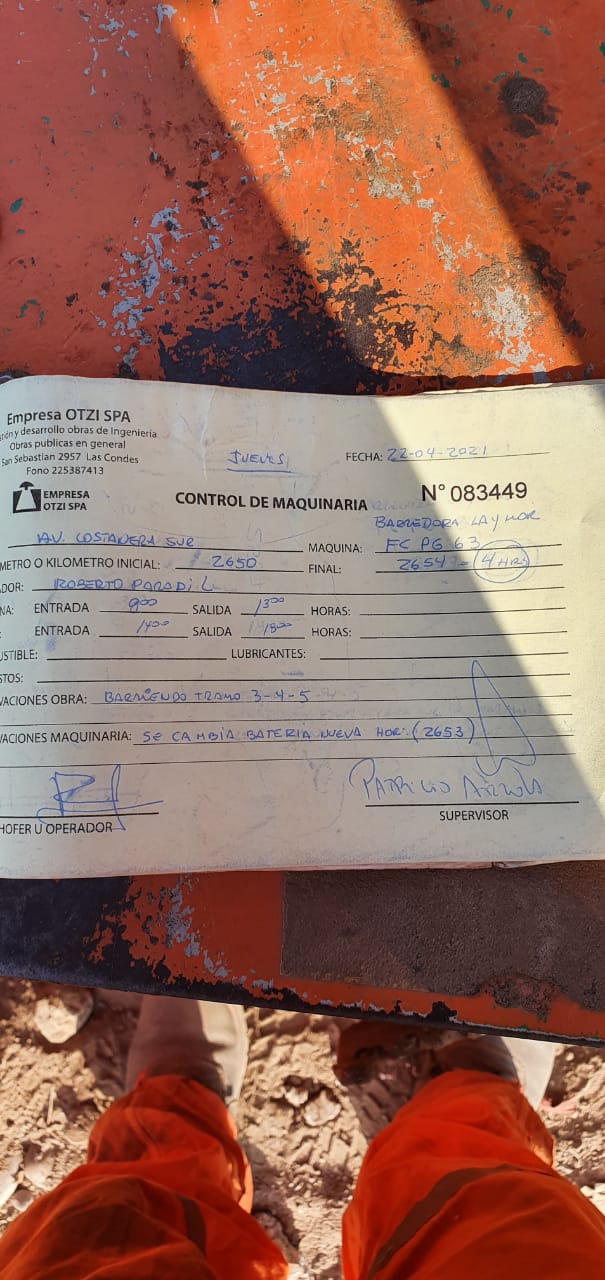 Empresa OTZI SPA
tión y desarrollo obras de Ingeniería
Obras publicas en general
San Sebastian 2957 Las Condes
Fono 225387413
EMPRESA
OTZI SPA
JUEVES
FECHA: 22-04-2021
CONTROL DE MAQUINARIA
N° 083449
BARREDORA LAYMOR
AV. COSTANERA SUR
MAQUINA: FC PG 63
METRO O KILOMETRO INICIAL: 2650
FINAL: 2654 = 4 HRS
ADOR: ROBERTO
NA: ENTRADA 900 SALIDA 1300 HORAS:
: ENTRADA 1400 SALIDA 1800 HORAS:
USTIBLE: LUBRICANTES:
STOS:
VACIONES OBRA: BARRIENDO TRAMO 3-4-5
VACIONES MAQUINARIA: SE CAMBIA BATERIA NUEVA HOR: (2653)
PATRICIO
HOFER U OPERADOR
SUPERVISOR